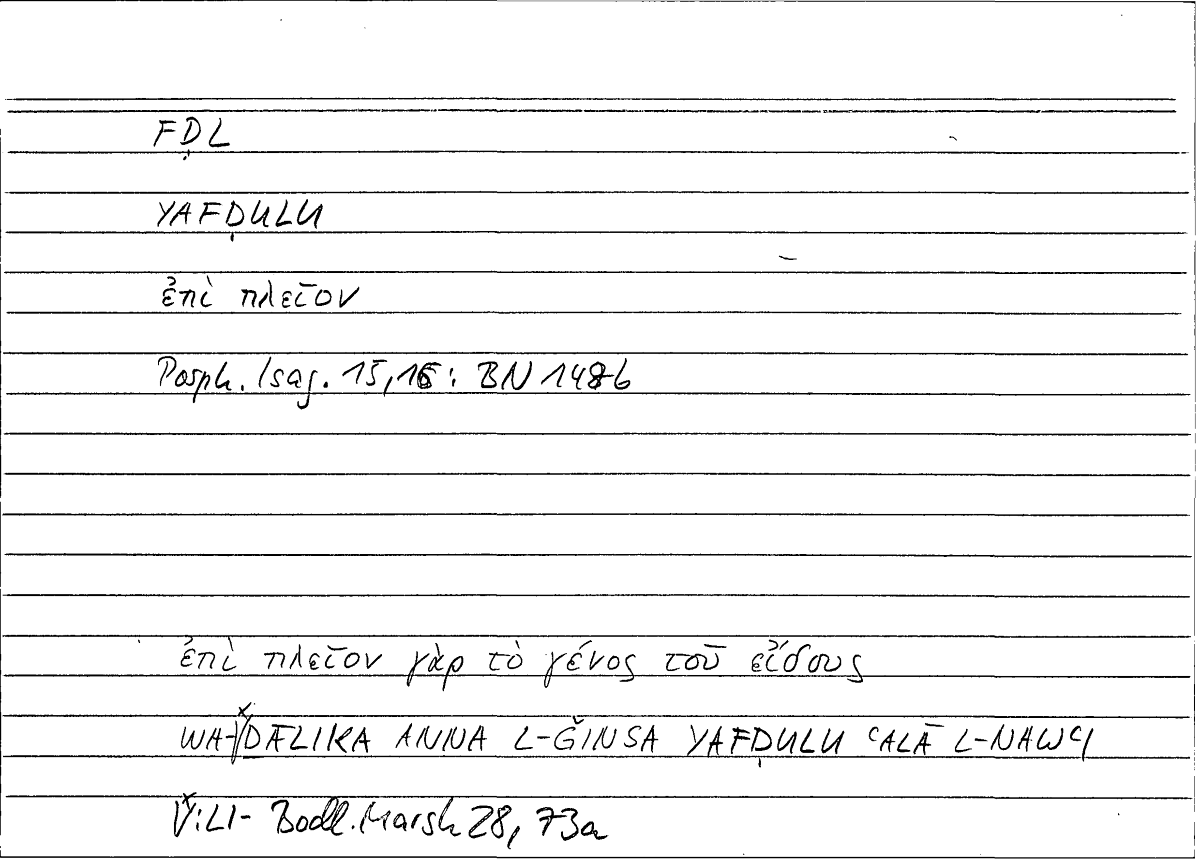 FḌL
YAFḌULU
ἐπὶ πλεῖον
Porph. Isag. 15,16: BN 148b
ἐπὶ πλεῖον γὰρ τὸ γένος τοῦ εἴδους
WA-ˣ/ḎĀLIKA ANNA L-ǦINSA YAFḌULU ʿALĀ L-NAWʿI
ˣ/: LI- Bodl. Marsh 28, 73a